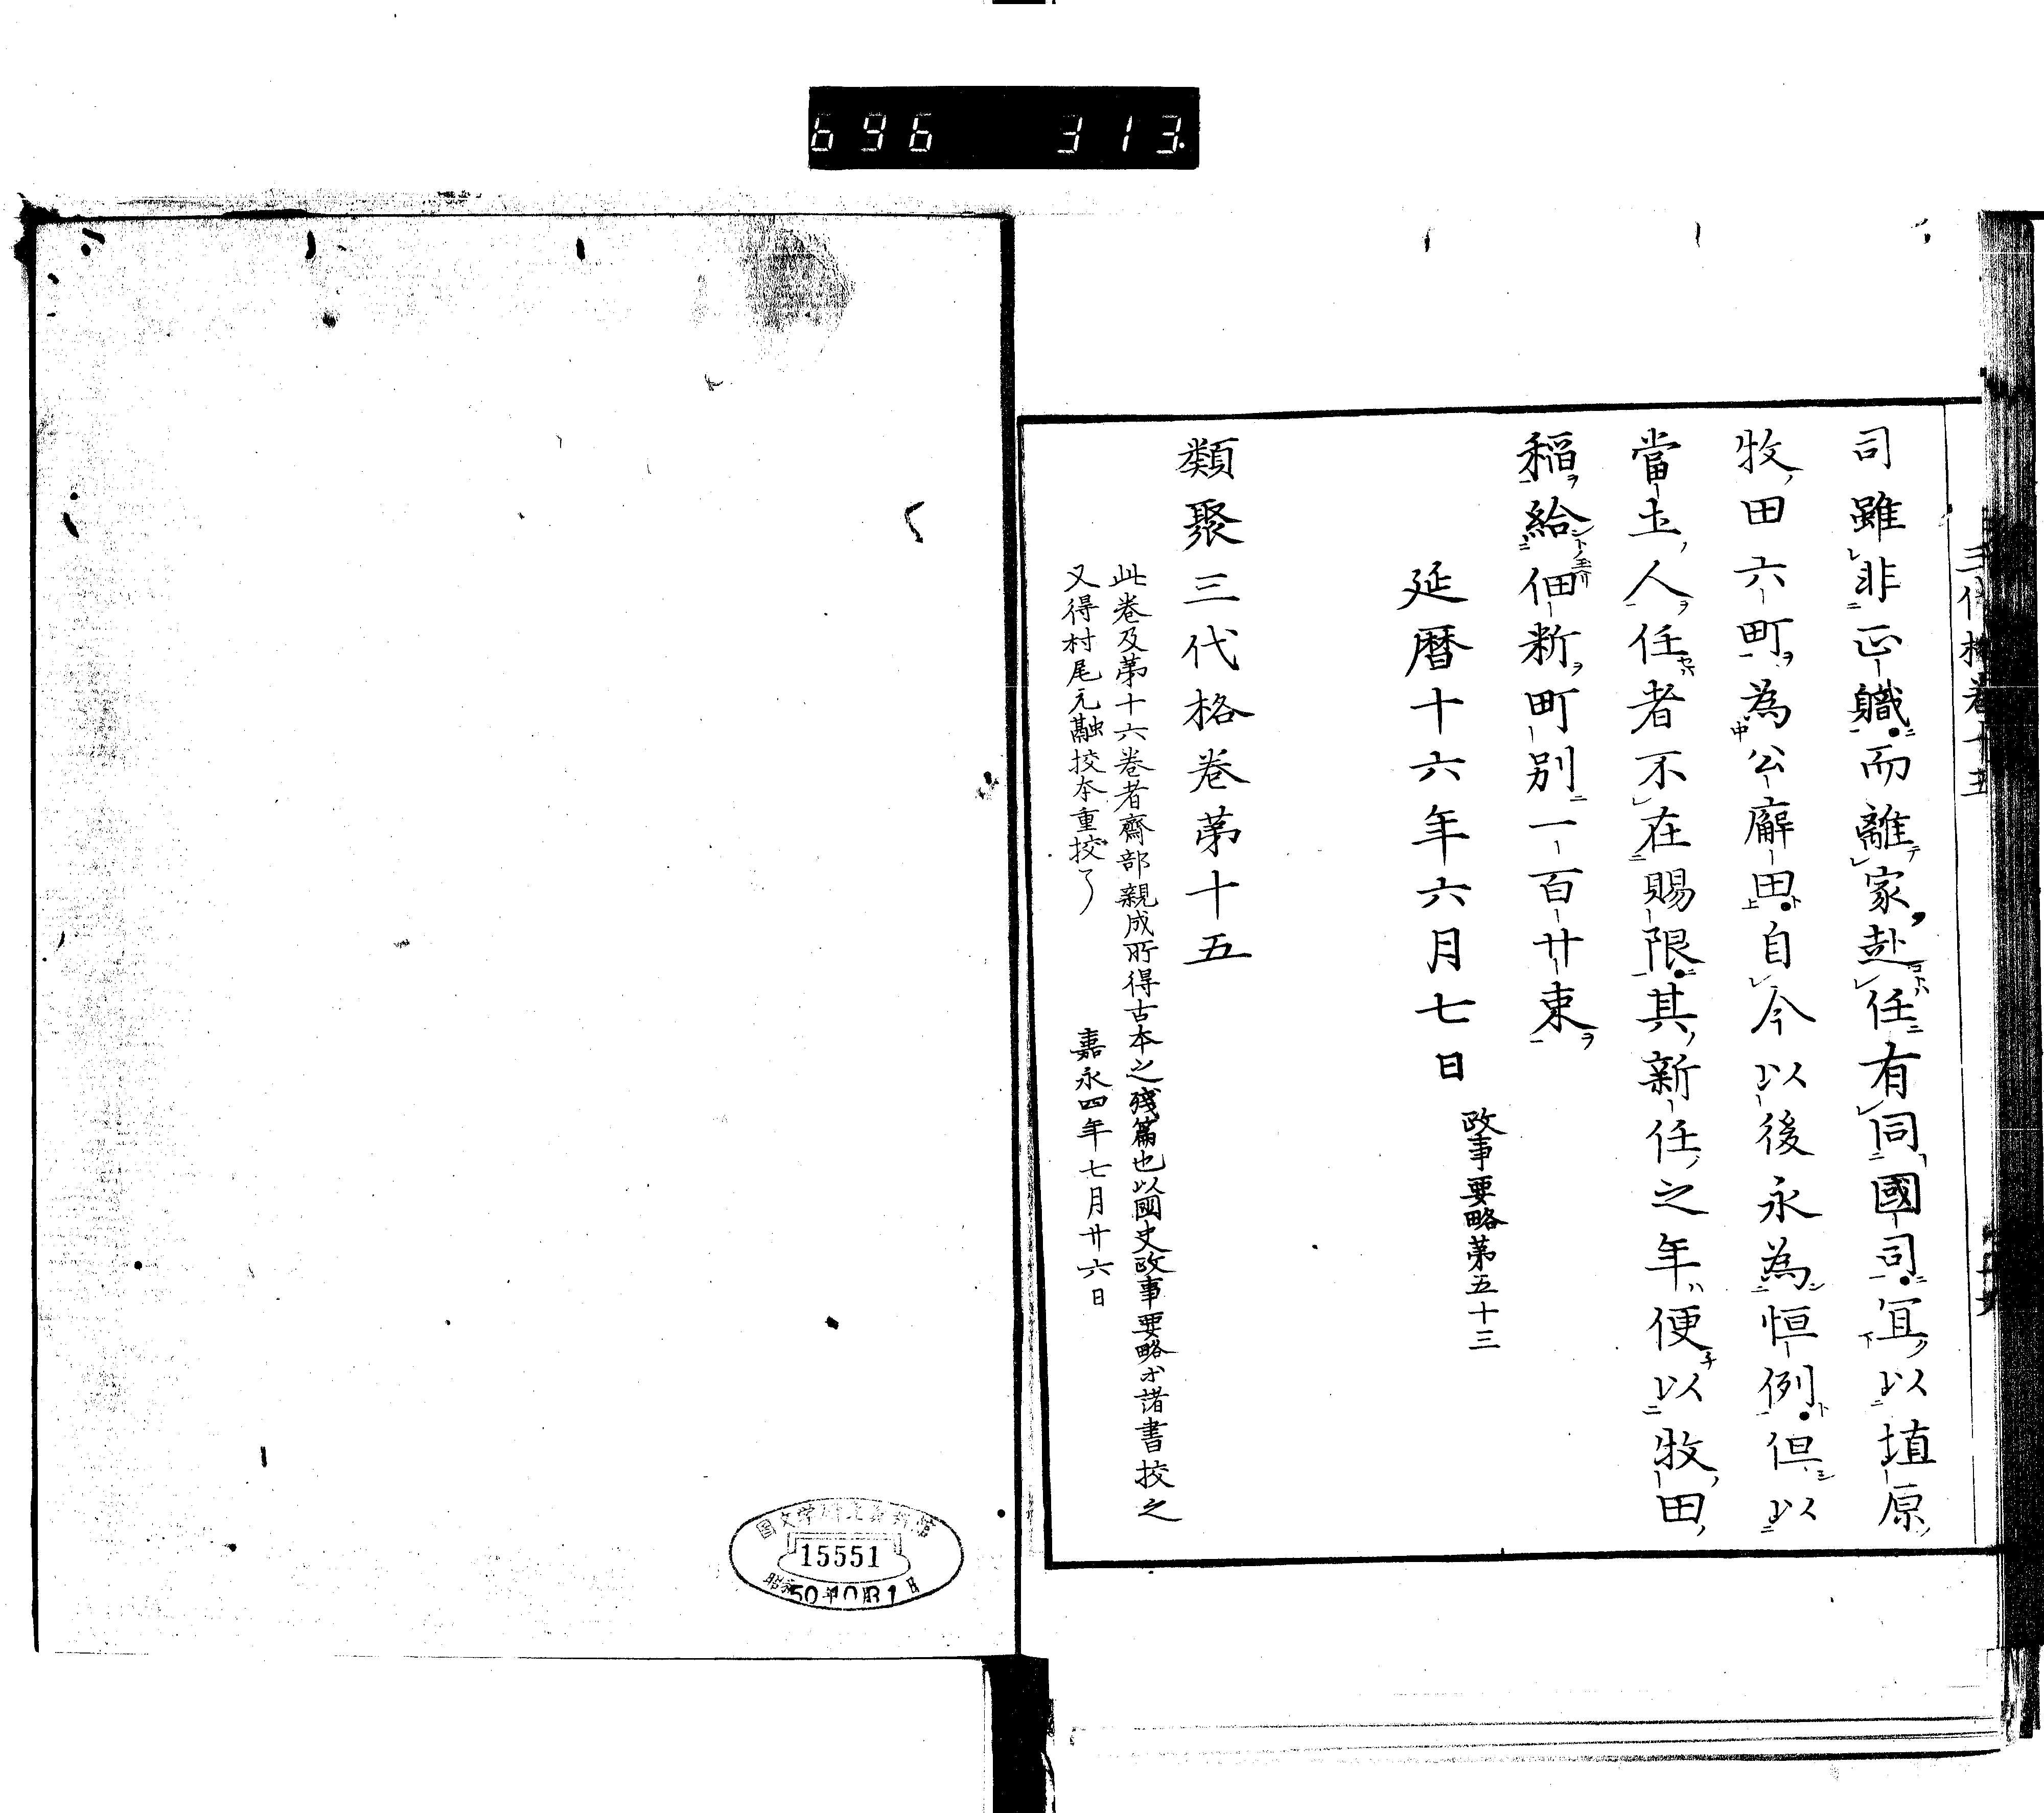 696 313
三代格卷十五
司雖非正職而離家赴任有同國司宜以埴原
牧田六町為公廨田自今以後永為恒例但以
當土人任者不在賜限其新任之年便以牧田
稲給佃粉町別一百廿束
延暦十六年六月七日 政事要略第五十三
類聚三代格卷第十五
此卷及第十六卷者齋部親成所得古本之殘篇也以國史政事要略等諸書挍之
又得村尾元融挍本重挍了 嘉永四年七月廿六日
国文学研究資料館
15551
昭和50年10月31日